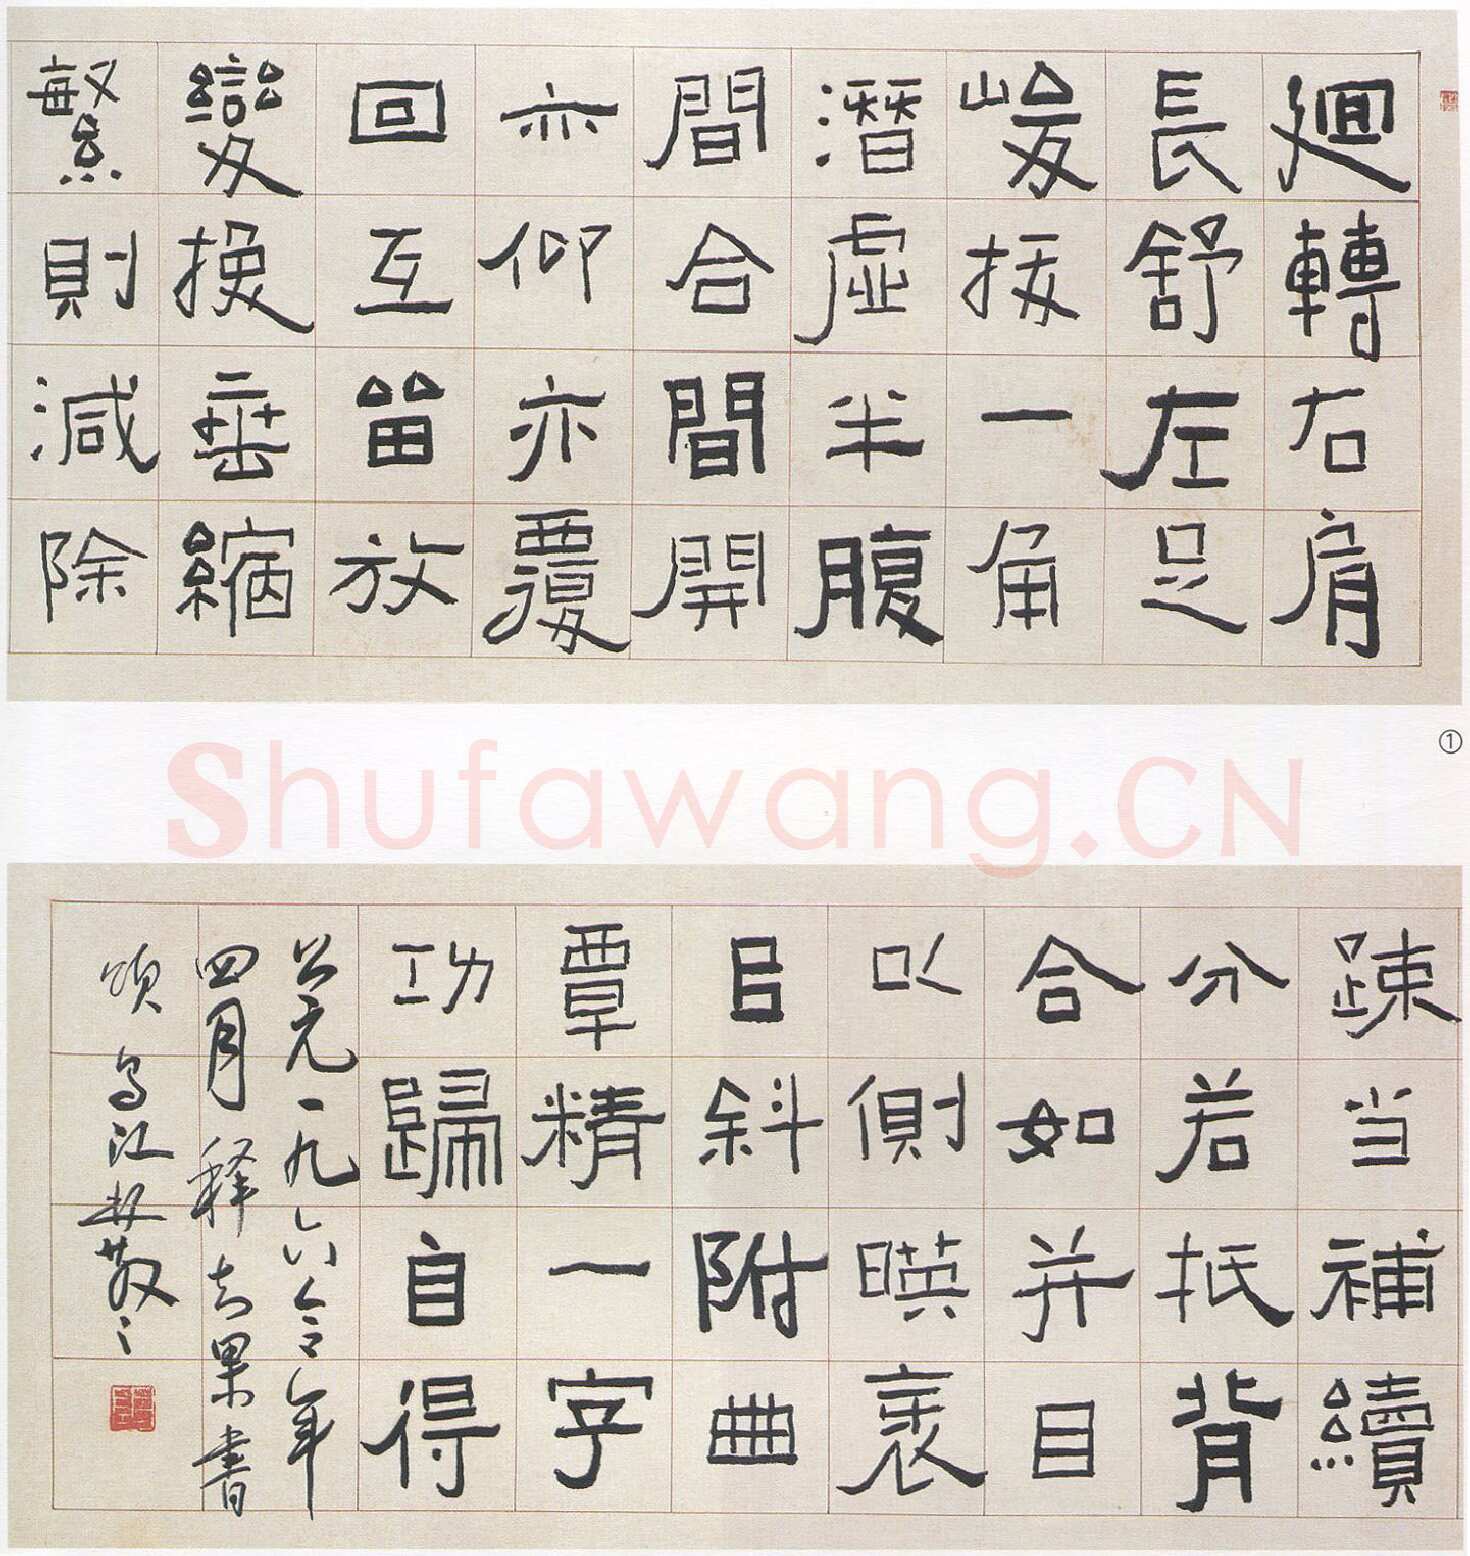 迴轉右肩
長舒左足
峻拔一角
潛虛半腹
間合間開
亦仰亦覆
回互留放
變換垂縮
繁則減除
①
Shufawang.CN
疎当補續
分若抵背
合如并目
以側暎衺
㠯斜附曲
覃精一字
功歸自得
公元一九六令年
四月释知果書
頌烏江林散之